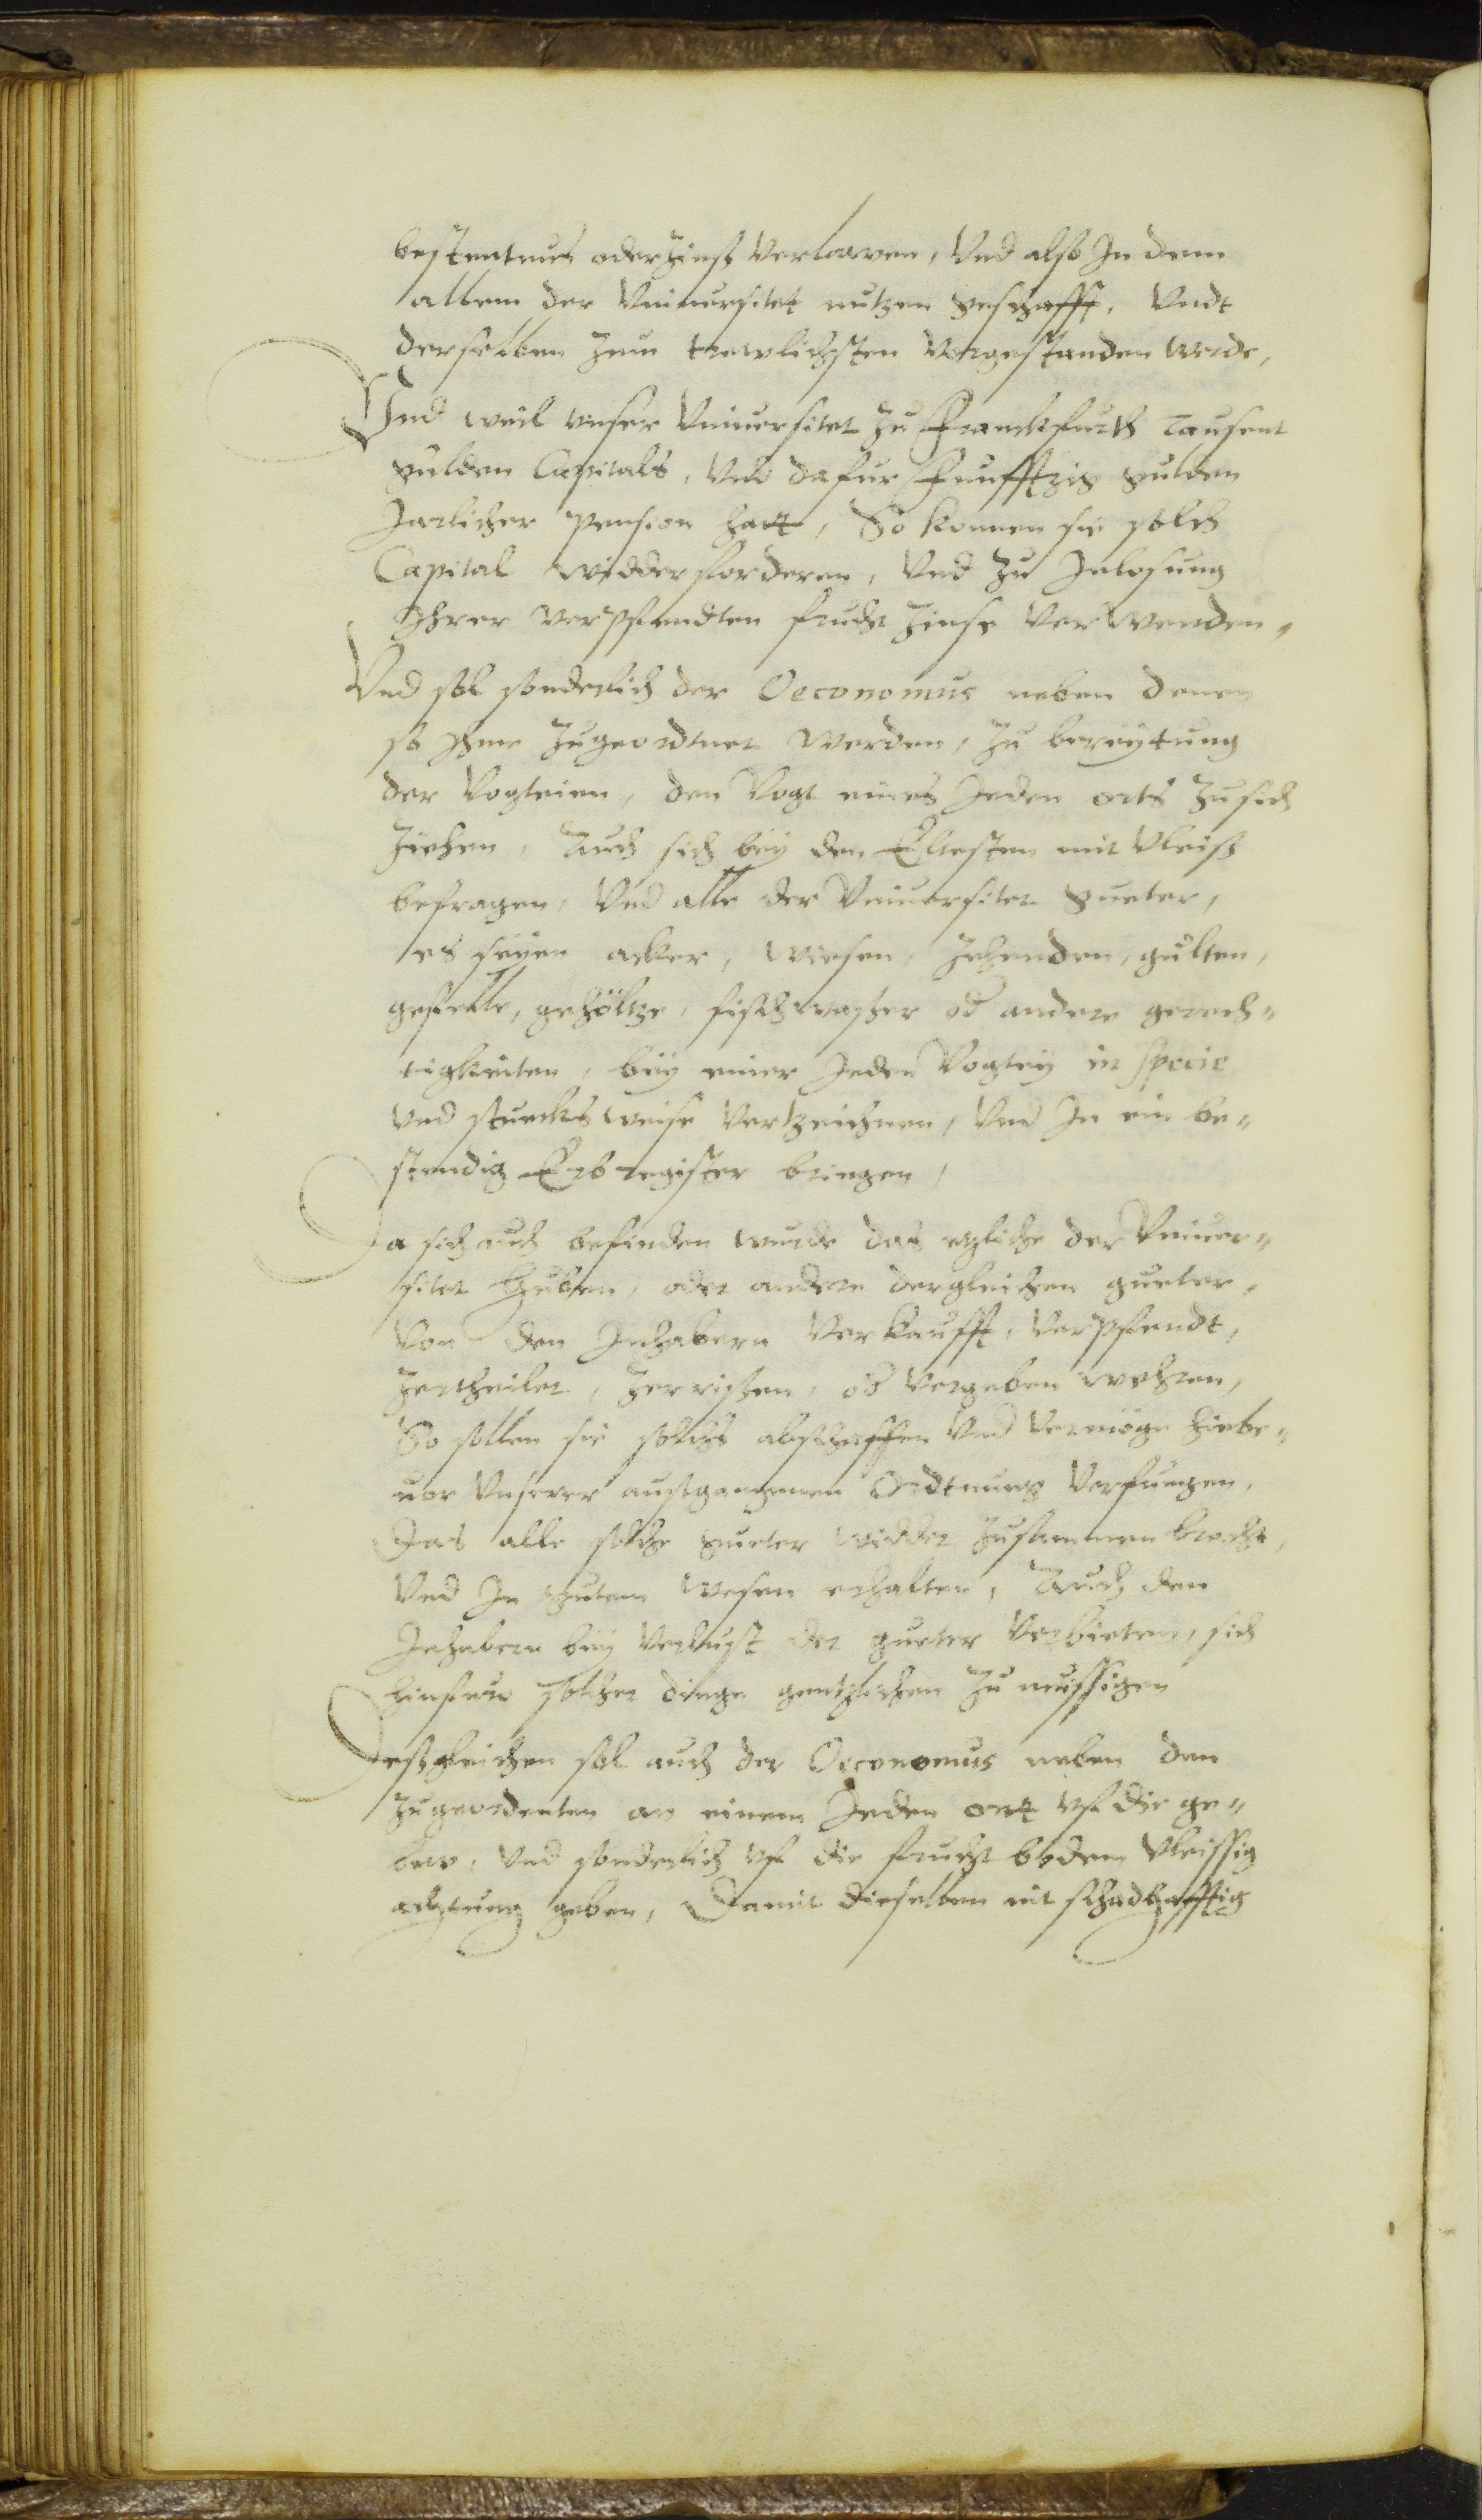 bestentnus oder Zinß verlawen, Vnd also In dem
allem der Vniuersitet nutzen geschafft, Vndt
derselben zum trewlichsten vorgestanden werde,
Vnd weil vnser Vniuersitet zu Franckfurth tausent
gulden Capitals, Vnd dafur Funfftzig gulden
Jarlicher pension hatt, So konnen sie solch
Capital widderforderen, Vnd zu Inlosung
Ihrer verpfendten frucht Zinse verwenden,
Vnd sol sonderlich der Oeconomus neben denen
so Ihme zugeordtnet werden, zu bereytung
der Vogteien, den Vogt eines Jeden orts zu sich
ziehen, Auch sich bey den Eltesten mit vleiß
befragen, Vnd alle der Vniuersitet gueter,
es seyen acker, wiesen, Zehenden, gülten,
gefelle, gehöltze, fischwasser od andere gerech-
tigkeiten, bey einer Jeden Vogtey in specie
vnd stucks weise vertzeichnen, Vnd In ein be-
stendig Erbregister bringen,
Da sich auch befinden wurde das etzliche der Vniuer-
sitet Huben, oder andere dergleichen gueter,
Von den Inhabern verkaufft, verpfendt,
zertheilet, zerrissen, od vergeben wehren,
So sollen sie solchs abschaffen Vnd vermöge hiebe-
uor Vnserer außgangenen Ordtnung verfuegen,
Das alle solche gueter widder zusammen bracht,
Vnd In gutem wesen erhalten, Auch den
Inhabern bey verlust der gueter verbieten, sich
hinfuro solcher dinge gentzlichen zu mussigen
Deßgleichen sol auch der Oeconomus neben den
zugeordenten an einem Jeden ort vf die ge-
bew, Vnd sonderlich vf die frucht bodem vleissig
achtung geben, Damit dieselben nit schadhafftig